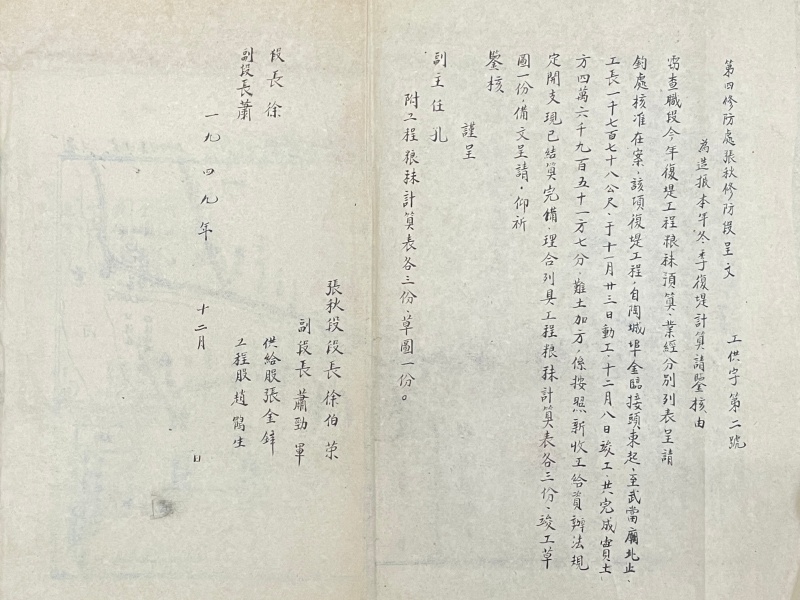 第四修防處張秋修防段呈文　　工供字第二號
為造报本年冬季復堤計算請鑒核由
窃查職段今年復堤工程粮秣預算，業經分別列表呈請
鈞處核准在案，該項復堤工程，自陶城埠金臨接頭東起，至武當廟北止，
工長一千七百七十八公尺，于十一月廿三日動工，十二月八日竣工，共完成實土
方四萬六千九百五十一方七分，難土加方，係按照新收工給資辦法規
定開支現已結算完備，理合列具工程粮秣計算表各三份，竣工草
圖一份，備文呈請，仰祈
鑒核
謹呈
副主任孔
附工程粮秣計算表各三份，草圖一份。
張秋段段長徐伯荣
副段長蕭勁軍
供給股張金鋅
工程股趙鶚生
段長徐
副段長蕭
一九四九年　十二月　日